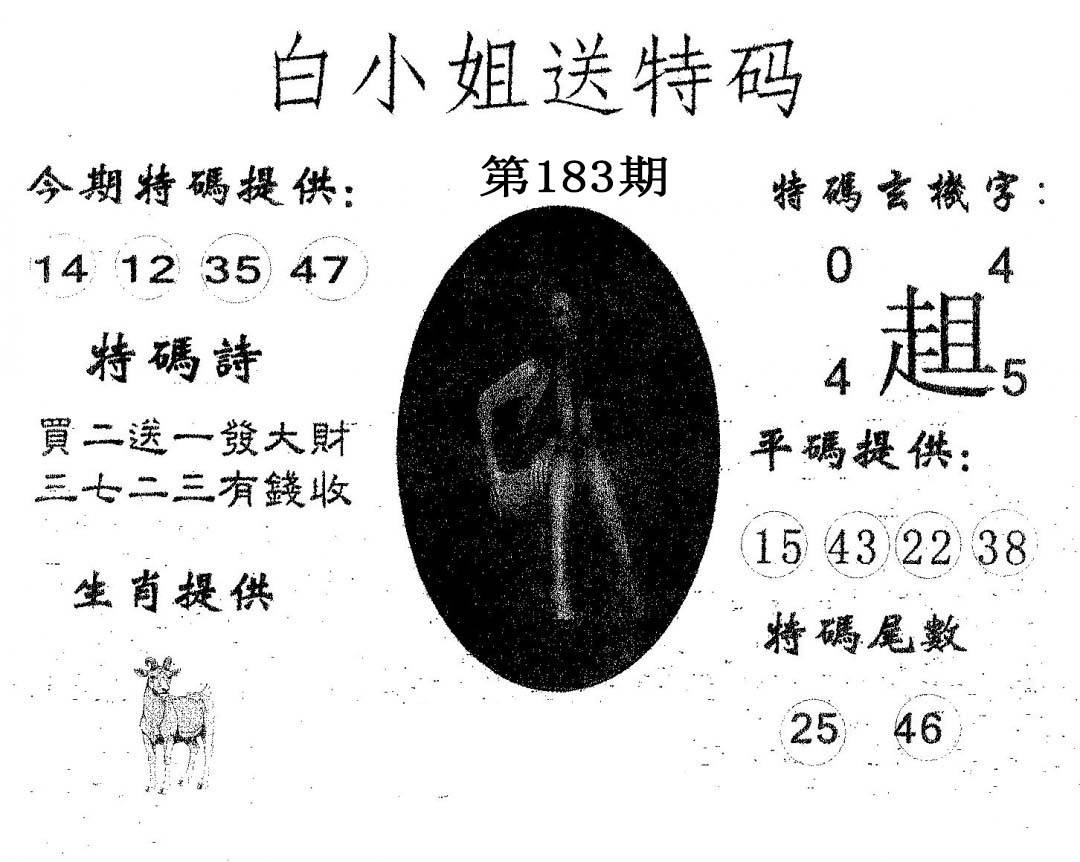 白小姐送特码
第183期
今期特碼提供：
14 12 35 47
特碼詩
買二送一發大財
三七二三有錢收
生肖提供
特碼玄機字：
0 4
趄
4 5
平碼提供：
15 43 22 38
特碼尾數
25 46